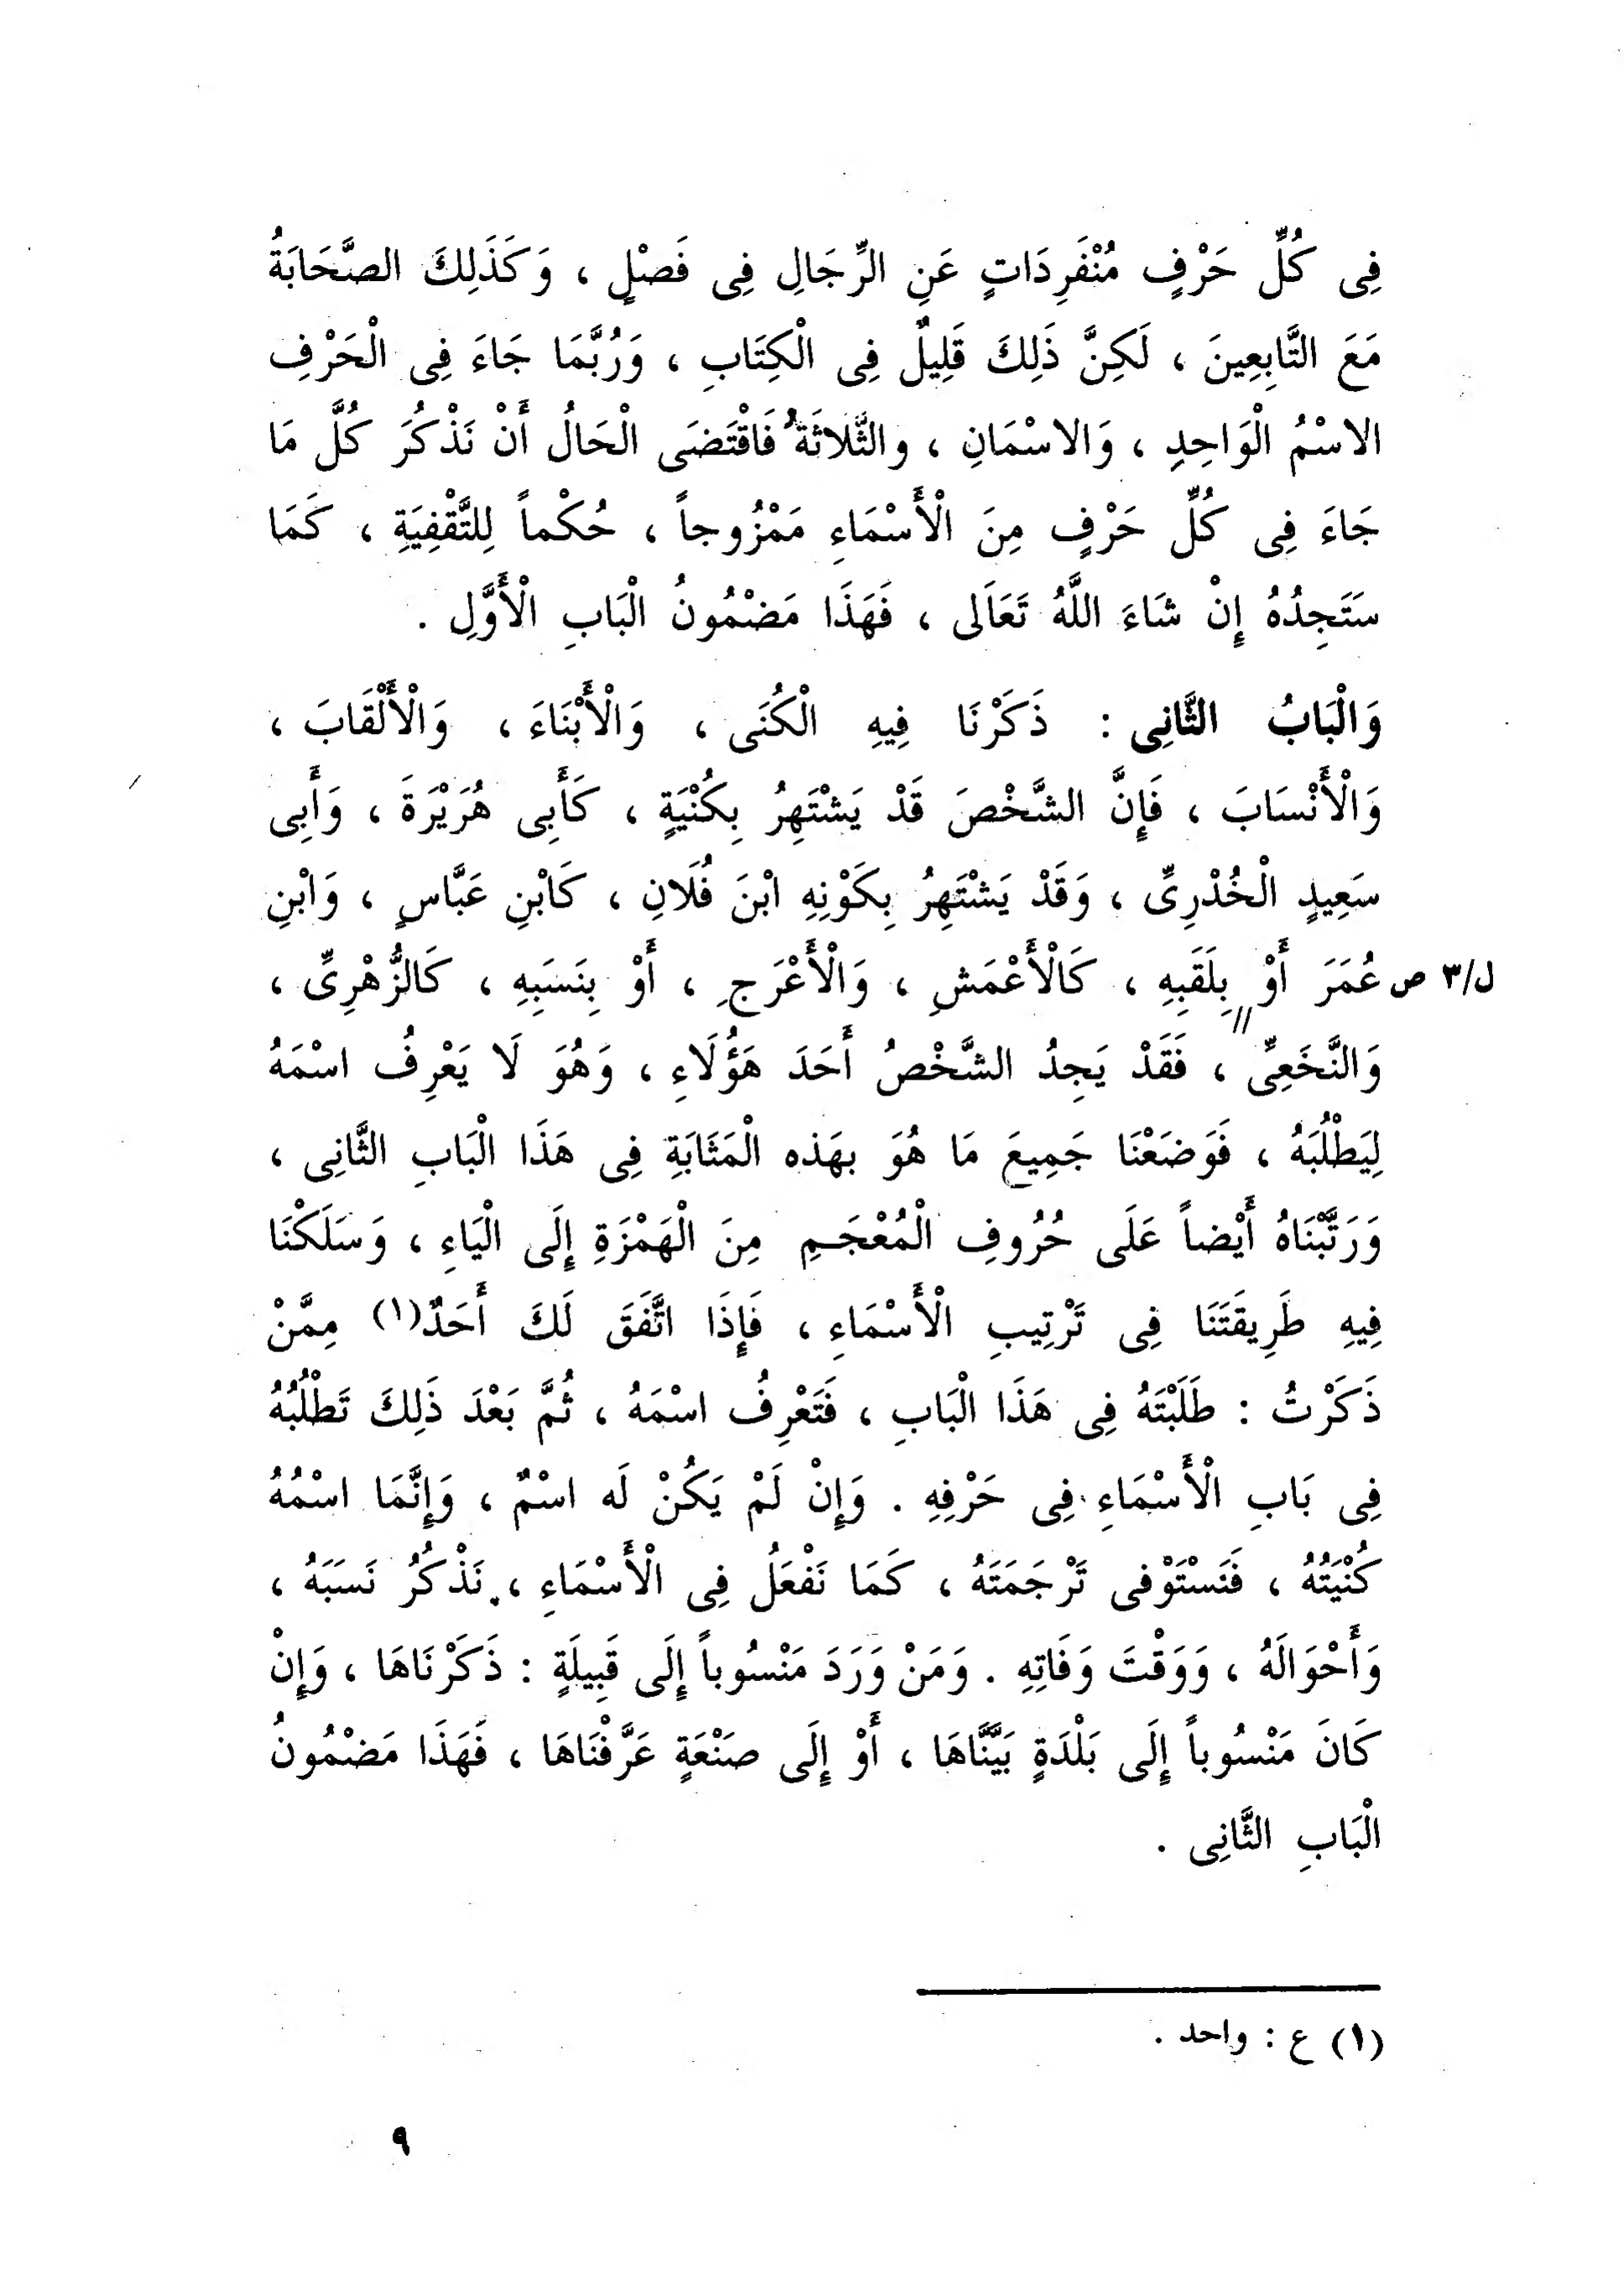 فِى كُلِّ حَرْفٍ مُنْفَرِدَاتٍ عَنِ الرِّجَالِ فِى فَصْلٍ ، وَكَذَلِكَ الصَّحَابَةُ
مَعَ التَّابِعِينَ ، لَكِنَّ ذَلِكَ قَلِيلٌ فِى الْكِتَابِ ، وَرُبَّمَا جَاءَ فِى الْحَرْفِ
الاسْمُ الْوَاحِدِ ، وَالاسْمَانِ ، والثَّلاثَةُ فَاقْتَضَى الْحَالُ أَنْ نَذْكُرَ كُلَّ مَا
جَاءَ فِى كُلِّ حَرْفٍ مِنَ الْأَسْمَاءِ مَمْزُوجاً ، حُكْماً لِلتَّقْفِيَةِ ، كَمَا
سَتَجِدُهُ إِنْ شَاءَ اللَّهُ تَعَالَى ، فَهَذَا مَضْمُونُ الْبَابِ الْأَوَّلِ .
وَالْبَابُ الثَّانِى : ذَكَرْنَا فِيهِ الْكُنَى ، وَالْأَبْنَاءَ ، وَالْأَلْقَابَ ،
وَالْأَنْسَابَ ، فَإِنَّ الشَّخْصَ قَدْ يَشْتَهِرُ بِكُنْيَةٍ ، كَأَبِى هُرَيْرَةَ ، وَأَبِى
سَعِيدٍ الْخُدْرِىِّ ، وَقَدْ يَشْتَهِرُ بِكَوْنِهِ ابْنَ فُلَانِ ، كَابْنِ عَبَّاسٍ ، وَابْنِ
ل/٣ ص عُمَرَ أَوْ // بِلَقَبِهِ ، كَالْأَعْمَشِ ، وَالْأَعْرَجِ ، أَوْ بِنَسَبِهِ ، كَالزُّهْرِىِّ ،
وَالنَّخَعِىِّ ، فَقَدْ يَجِدُ الشَّخْصُ أَحَدَ هَؤُلَاءِ ، وَهُوَ لَا يَعْرِفُ اسْمَهُ
لِيَطْلُبَهُ ، فَوَضَعْنَا جَمِيعَ مَا هُوَ بهَذه الْمَثَابَةِ فِى هَذَا الْبَابِ الثَّانِى ،
وَرَتَّبْنَاهُ أَيْضاً عَلَى حُرُوفِ الْمُعْجَمِ مِنَ الْهَمْزَةِ إِلَى الْيَاءِ ، وَسَلَكْنَا
فِيهِ طَرِيقَتَنَا فِى تَرْتِيبِ الْأَسْمَاءِ ، فَإِذَا اتَّفَقَ لَكَ أَحَدٌ(١) مِمَّنْ
ذَكَرْتُ : طَلَبْتَهُ فِى هَذَا الْبَابِ ، فَتَعْرِفُ اسْمَهُ ، ثُمَّ بَعْدَ ذَلِكَ تَطْلُبُهُ
فِى بَابِ الْأَسْمَاءِ فِى حَرْفِهِ . وَإِنْ لَمْ يَكُنْ لَه اسْمٌ ، وَإِنَّمَا اسْمُهُ
كُنْيَتُهُ ، فَنَسْتَوْفى تَرْجَمَتَهُ ، كَمَا نَفْعَلُ فِى الْأَسْمَاءِ ، نَذْكُرُ نَسَبَهُ ،
وَأَحْوَالَهُ ، وَوَقْتَ وَفَاتِهِ . وَمَنْ وَرَدَ مَنْسُوباً إِلَى قَبِيلَةٍ : ذَكَرْنَاهَا ، وَإِنْ
كَانَ مَنْسُوباً إِلَى بَلْدَةٍ بَيَّنَّاهَا ، أَوْ إِلَى صَنْعَةٍ عَرَّفْنَاهَا ، فَهَذَا مَضْمُونُ
الْبَابِ الثَّانِى .
(١) ع : واحد .
٩